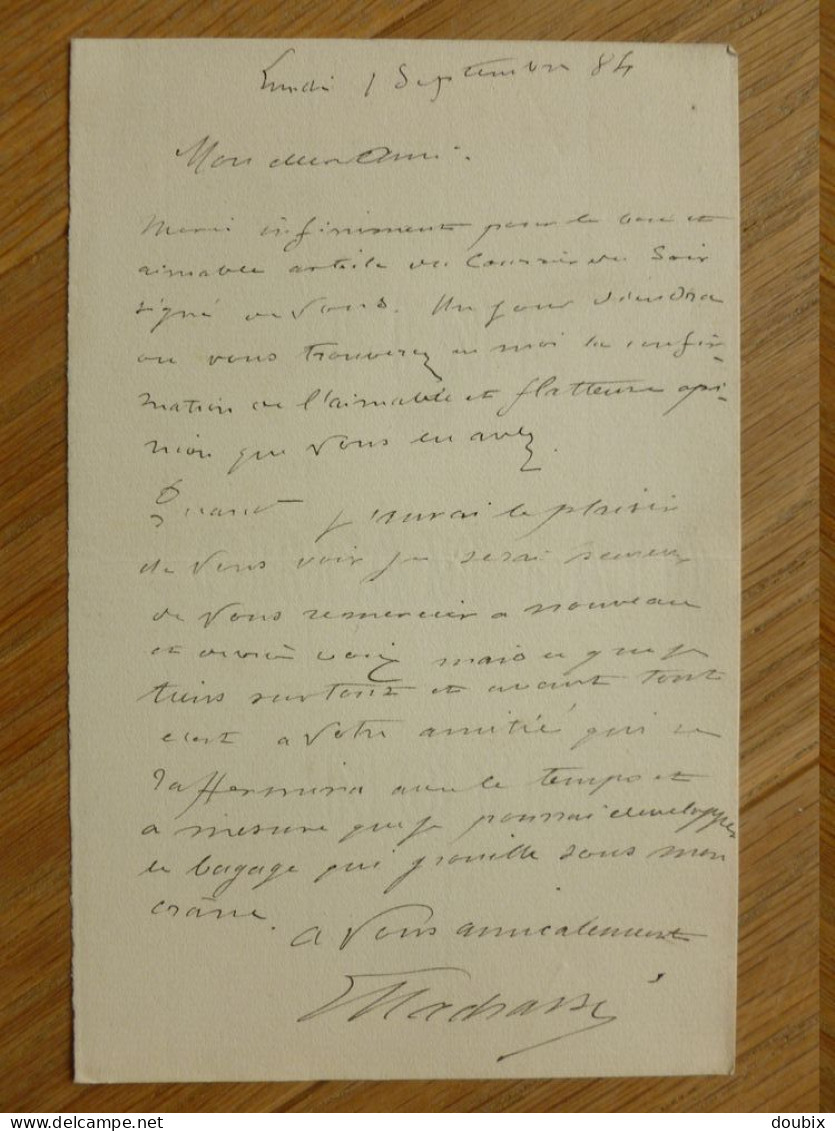 Lundi 1 Septembre 84
Mon cher Ami.
Merci infiniment pour le bon et
aimable article du Courrier du Soir
signé de Vous. Un jour viendra
ou vous trouverez en moi la confir-
mation de l'aimable et flatteuse opi-
nion que Vous en avez.
Quand j'aurai le plaisir
de Vous voir je serai heureux
de Vous remercier a nouveau
et de vive voix, mais ce que je
tiens surtout et avant tout
c'est a Votre amitié qui se
raffermira avec le temps et
a mesure que je pourrai developper
le bagage qui grouille sous mon
crâne.
a Vous amicalement
doubix